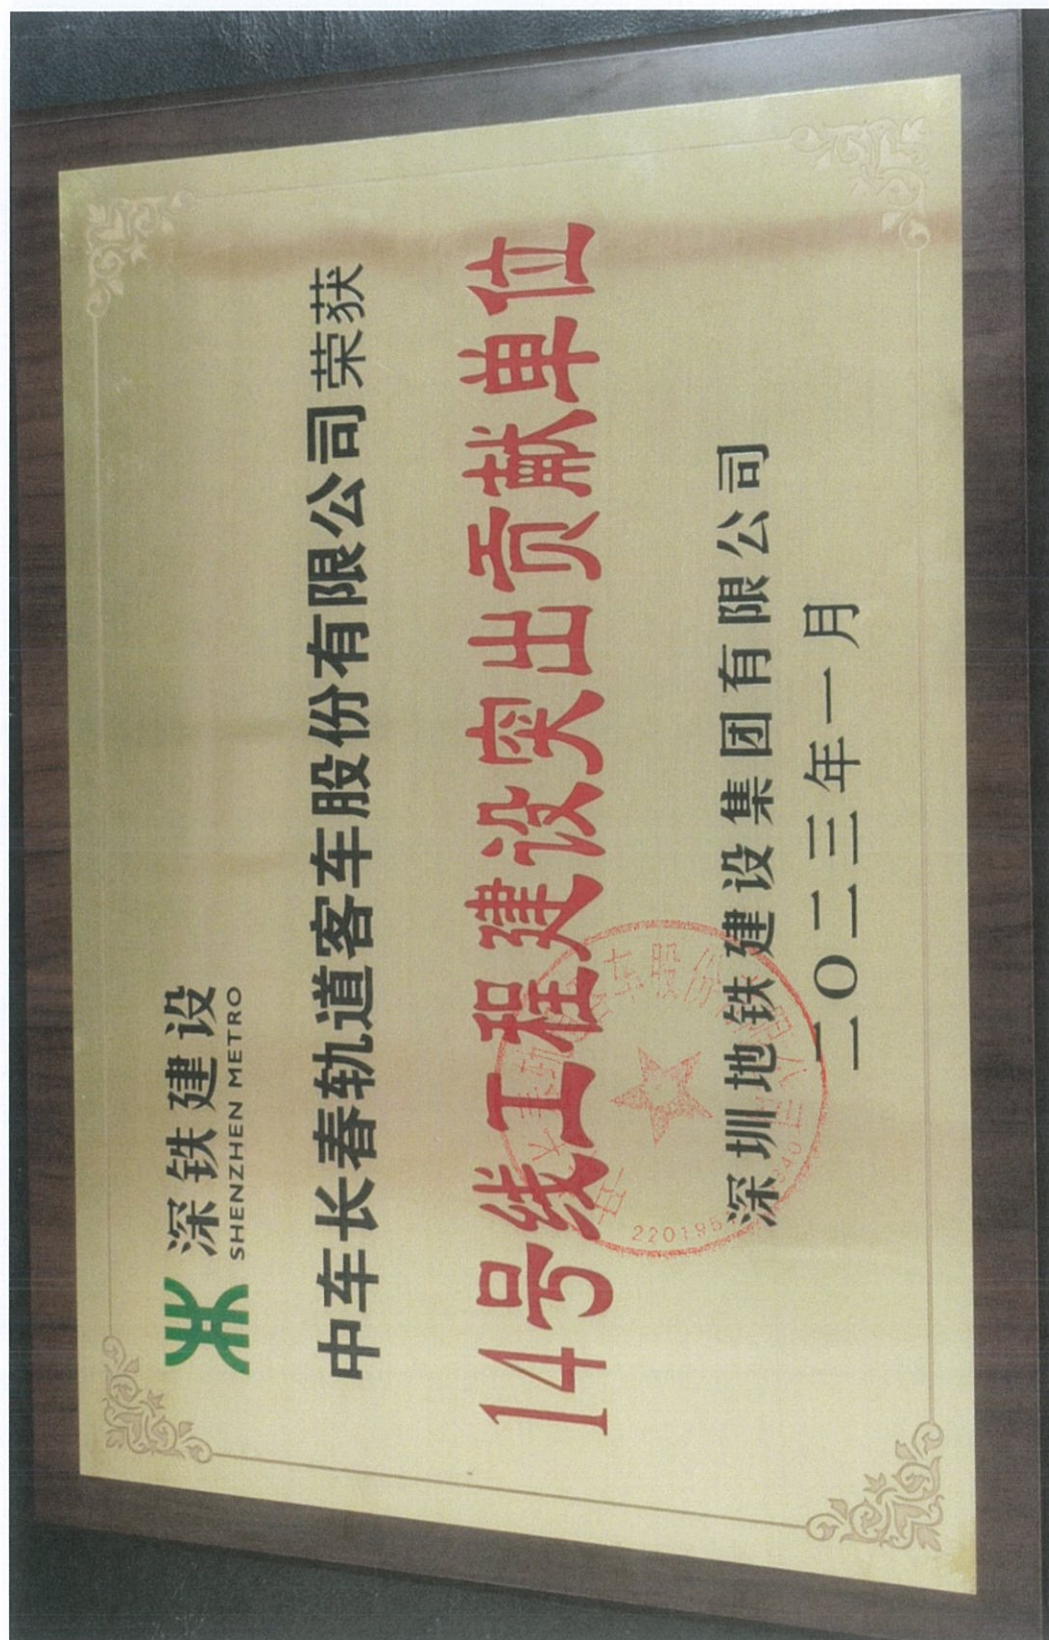 深铁建设
SHENZHEN METRO
中车长春轨道客车股份有限公司荣获
14号线工程建设突出贡献单位
深圳地铁建设集团有限公司
二〇二三年一月